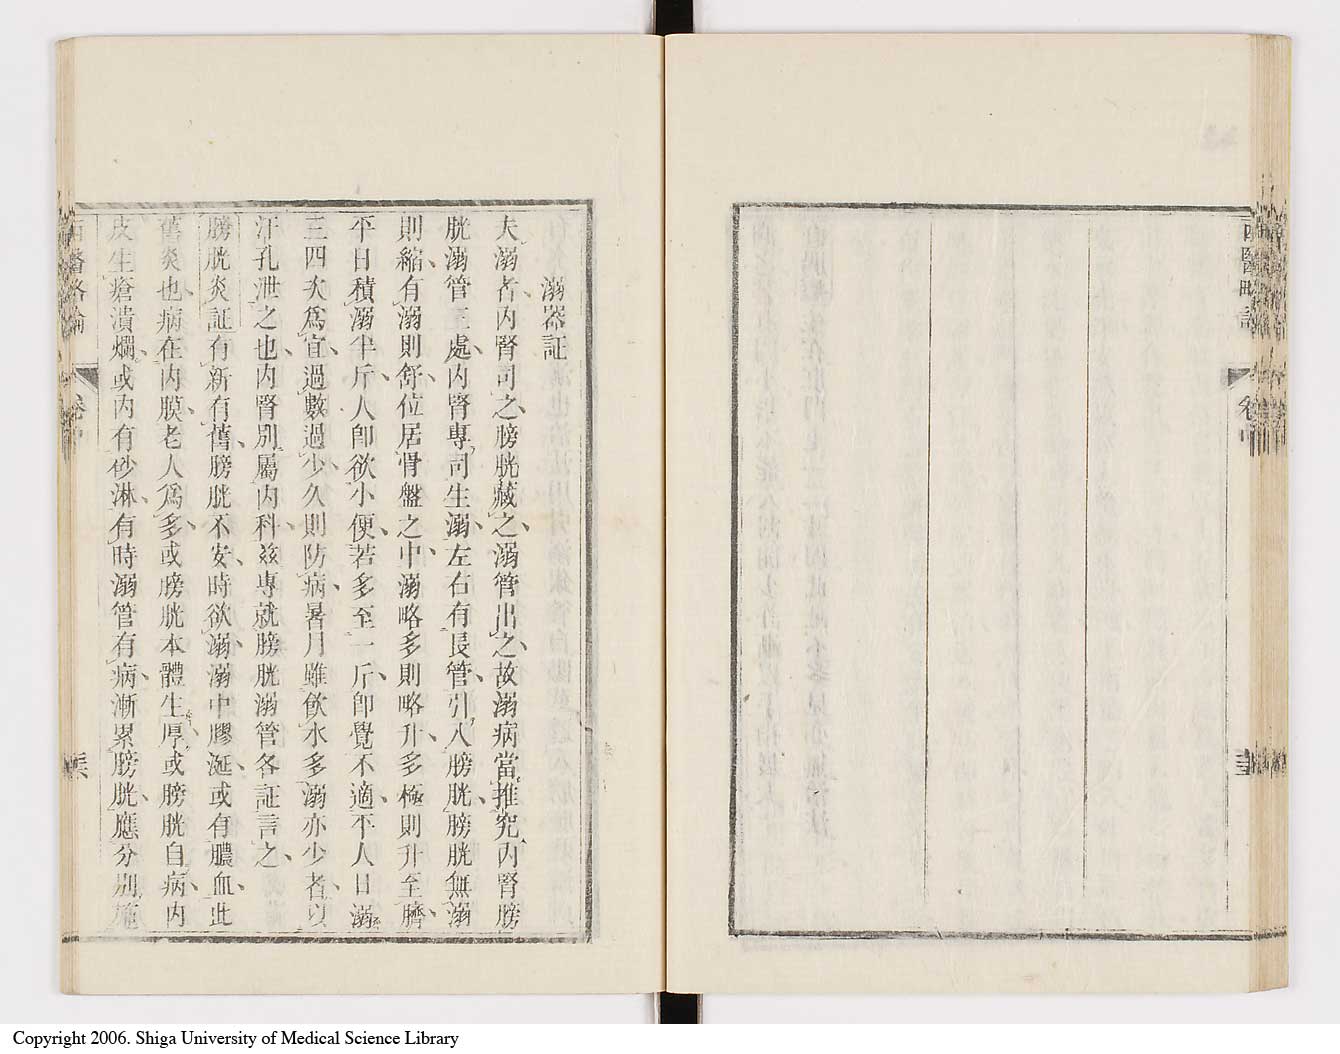 西醫略論
卷中
溺器証
夫溺者內腎司之膀胱藏之溺管出之故溺病當推究內腎膀
胱溺管三處內腎專司生溺左右有長管引入膀胱膀胱無溺
則縮有溺則舒位居骨盤之中溺略多則略升多極則升至臍
平日積溺半斤人卽欲小便若多至一斤卽覺不適平人日溺
三四次爲宜過數過少久則防病暑月雖飮水多溺亦少者以
汗孔泄之也內腎別屬內科玆專就膀胱溺管各証言之
膀胱炎証有新有舊膀胱不安時欲溺溺中膠涎或有膿血此
舊炎也病在內膜老人爲多或膀胱本體生厚或膀胱自病內
皮生瘡潰爛或內有砂淋有時溺管有病漸累膀胱應分別施
西醫略論
卷中
Copyright 2006. Shiga University of Medical Science Library